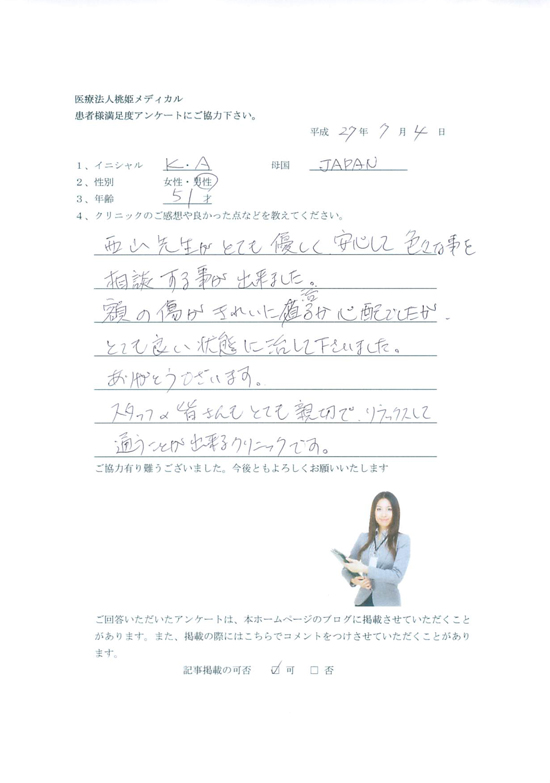 医療法人桃姫メディカル
患者様満足度アンケートにご協力下さい。
平成 27 年 7 月 4 日
1、イニシャル K.A 母国 JAPAN
2、性別 女性・男性
3、年齢 51 才
4、クリニックのご感想や良かった点などを教えてください。
西山先生がとても優しく安心して色々な事を
相談する事が出来ました。
額の傷がきれいに治るか心配でしたが、
とても良い状態に治して下さいました。
ありがとうございます。
スタッフの皆さんもとても親切で、リラックスして
通うことが出来るクリニックです。
ご協力有り難うございました。今後ともよろしくお願いいたします
ご回答いただいたアンケートは、本ホームページのブログに掲載させていただくこと
があります。また、掲載の際にはこちらでコメントをつけさせていただくことがあり
ます。
記事掲載の可否 ☑ 可 □ 否